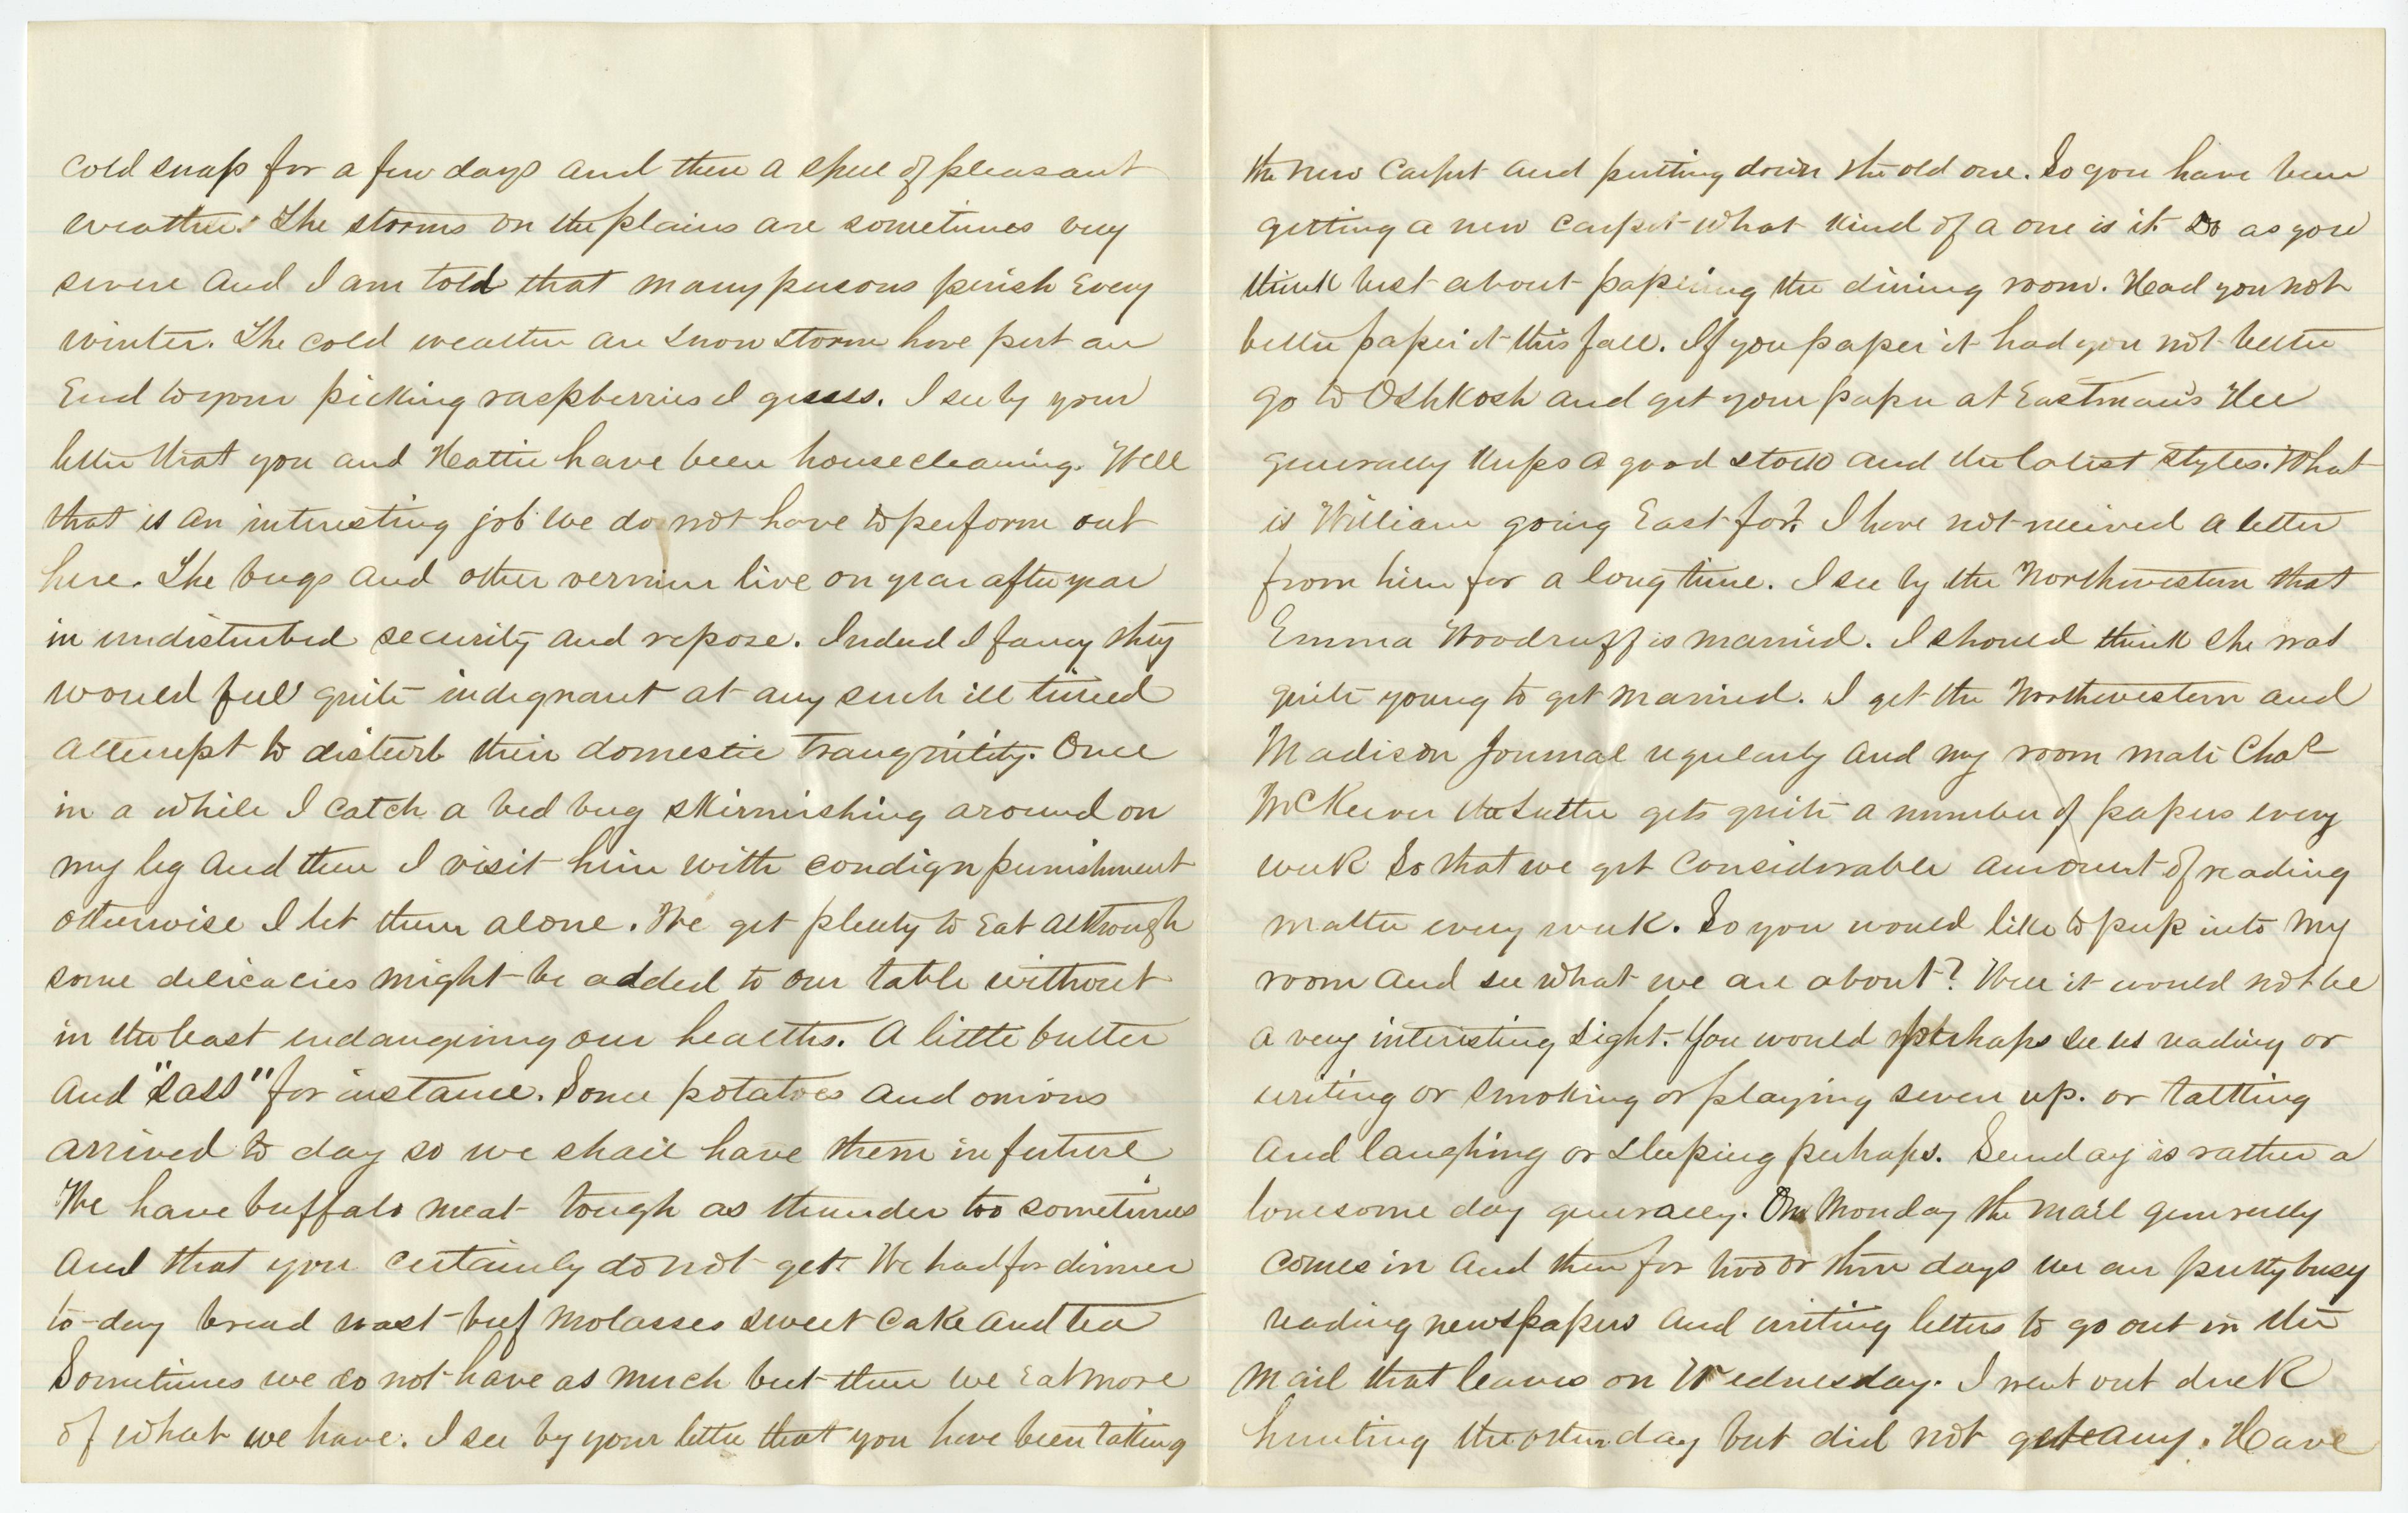 cold snap for a few days and then a spell of pleasant
weather. The storms on the plains are sometimes very
severe and I am told that many persons perish every
winter. The cold weather an snow storm have put an
End to your picking raspberries I guess. I see by your
letter that you and Hattie have been housecleaning. Well
that is an interesting job we do not have to perform out
here. The bugs and other vermin live on year after year
in undisturbed security and repose. Indeed I fancy they
would feel quite indignant at any such ill timed
attempt to disturb their domestic tranquility. Once
in a while I catch a bed bug skirmishing around on
my leg and then I visit him with condign punishment
otherwise I let them alone. We get plenty to Eat although
some delicacies might be added to our table without
in the least endangering our healths. A little butter
and "sass" for instance. Some potatoes and onions
arrived to day so we shall have them in future
We have buffalo meat tough as thunder too sometimes
and that you certainly do not get. We had for dinner
to-day bread roast-beef molasses sweet cake and tea
Sometimes we do not have as much but then we Eat more
of what we have. I see by your letter that you have been taking
the new carpet and putting down the old one. So you have been
getting a new carpet what kind of a one is it. Do as you
think best about papering the dining room. Had you not
better paper it this fall. If you paper it had you not better
go to Oshkosh and get your paper at Eastman's He
generally keeps a good stock and the latest styles. What
is William going East for? I have not received a letter
from him for a long time. I see by the Northwestern that
Emma Woodruff is married. I should think she was
quite young to get married. I get the Northwestern and
Madison Journal regularly and my room mate Chas
McKeever the Sutler gets quite a number of papers every
week So that we get considerable amount of reading
matter every week. So you would like to peep into my
room and see what we are about? Well it would not be
a very interesting sight. You would perhaps see us reading or
writing or smoking or playing seven up. or talking
and laughing or sleeping perhaps. Sunday is rather a
lonesome day generally. On Monday the mail generally
comes in and then for two or three days we are pretty busy
reading newspapers and writing letters to go out in the
mail that leaves on Wednesday. I went out duck
hunting the other day but did not get any. Have